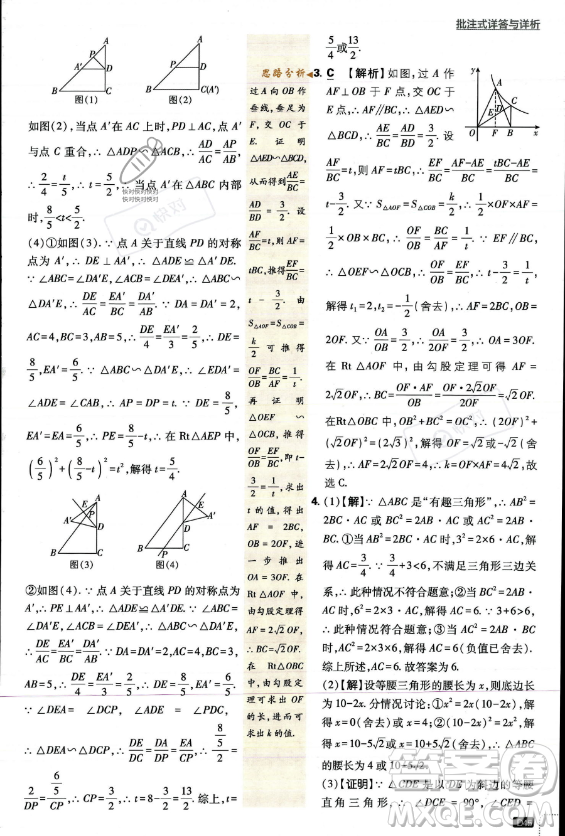 批注式详答与详析
图(1)
图(2)
如图(2),当点A′在AC上时,PD⊥AC,点A′
与点C重合,∴△ADP∽△ACB,∴AD/AC=AP/AB,
∴2/4=t/5,∴t=5/2,∴当点A′在△ABC内部
时,8/5<t<5/2.
(4)①如图(3).∵点A关于直线PD的对称
点为A′,∴DE⊥AA′,∴△ADE≌△A′DE.∵
∠ABC=∠DA′E,∠ACB=∠DEA′,∴△ABC∽
△DA′E,∴DE/AC=EA′/BC=DA′/AB.∵DA=DA′=2,
AC=4,BC=3,AB=5,∴DE/4=EA′/3=2/5,∴DE=
8/5,EA′=6/5.∵△ABC∽△DA′E,∴∠EDA′=
∠ADE=∠CAB,∴AP=DP=t.∵DE=8/5,
EA′=EA=6/5,∴在Rt△AEP中,
(6/5)²+(8/5-t)²=t²,解得t=5/4.
图(3)
图(4)
②如图(4).∵点A关于PD的对称点为
A′,∴PE⊥AA′,∴△ADE≌△A′DE.∵
∠ABC=∠DA′E,∴△ABC∽△DA′E,∴
DE/AC=EA′/BC=DA′/AB.∵DA=DA′=2,AC=4,BC=3,
AB=5,∴DE/4=EA′/3=2/5,∴DE=8/5,EA′=6/5.
∵∠DEA=∠DCP,∠ADE=∠PDC,
∴△DEA∽△DCP,∴AD/DP=DE/DC=EA/CP,∴
2/DP=(8/5)/2=(6/5)/CP,∴CP=3/2,∴t=8-3/2=13/2.综上,t=
5/4或13/2.
思路分析
过A向OB作
垂线,垂足为
F,交OC于
E.证明
△AED∽△BCD,
从而得到AE/BC=
AD/BD=3/2.设
AF/BC=t,则AF=
tBC,推得EF/BC=
t-3/2.由
S△AOF=S△COB=
k/2可推得
OF/OB=BC/AF=1/t.
再证明
△OEF∽
△OCB,推得
OF/OB=EF/BC,即t-
3/2=1/t,求出
t的值,得出
AF=2BC,
OB=2OF.进
一步推出
OA=3OF.在
Rt△AOF中,
由勾股定理得
AF=2√2OF,
∴BC=√2OF.
在Rt△OBC
中,由勾股定
理可求出OF
的长,进而可
求出k的值.
3.C【解析】如图,过A作
AF⊥OB于F点,交OC于
E点,∴AF∥BC,∴△AED∽
△BCD,∴AE/BC=AD/BD=3/2.设
AF/BC=t,则AF=tBC,∴EF/BC=(AF-AE)/BC=(tBC-AE)/BC=
t-3/2.又∵S△AOF=S△COB=k/2,∴1/2×OF×AF=
1/2×OB×BC,∴OF/OB=BC/AF=1/t.∵EF∥BC,
∴△OEF∽△OCB,∴OF/OB=EF/BC,∴t-3/2=1/t,
解得t₁=2,t₂=-1/2(舍去),∴AF=2BC,OB=
2OF.又∵OA/OB=3/2,∴OA/OF=3/1,∴OA=3OF.
在Rt△AOF中,由勾股定理可得AF=
2√2OF,∴BC=OF·AF/OB=OF·2√2OF/2OF=√2OF,
在Rt△OBC中,OB²+BC²=OC²,∴(2OF)²+
(√2OF)²=(2√3)²,解得OF=√2(负值已舍
去),∴AF=2√2OF=4,∴k=OF×AF=4√2,故
选C.
4.(1)【解】∵△ABC是“有趣三角形”,∴AB²=
2BC·AC或BC²=2AB·AC或AC²=2AB·
BC.∵AB=3,BC=6,∴当AB²=2BC·AC时,3²=2×6×
AC,∴AC=3/4,∵3/4+3<6,不满足三角形三边关
系,∴此种情况不符合题意;当BC²=2AB·AC
时,6²=2×3×AC,∴AC=6.∵3+6>6,
∴此种情况符合题意;当AC²=2AB·BC时,
AC²=2×3×6,∴AC=6(负值已舍去).
综上所述,AC=6.故答案为6.
(2)【解】设等腰三角形的腰长为x,则底边长
为10-2x.分情况讨论:①x²=2x(10-2x),解
得x=0(舍去)或x=4;②(10-2x)²=2x²,解
得x=10-5√2或x=10+5√2(舍去),∴△ABC
的腰长为4或10-5√2.
(3)【证明】∵△CDE是以DE为斜边的等腰
直角三角形,∴∠DCE=90°,∠CED=